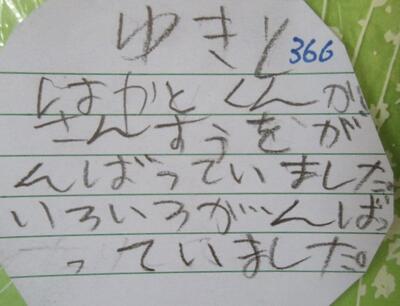 ゆきと 366
はやとくんが
さんすうをが
んばっていました。
いろいろがんば
っていました。